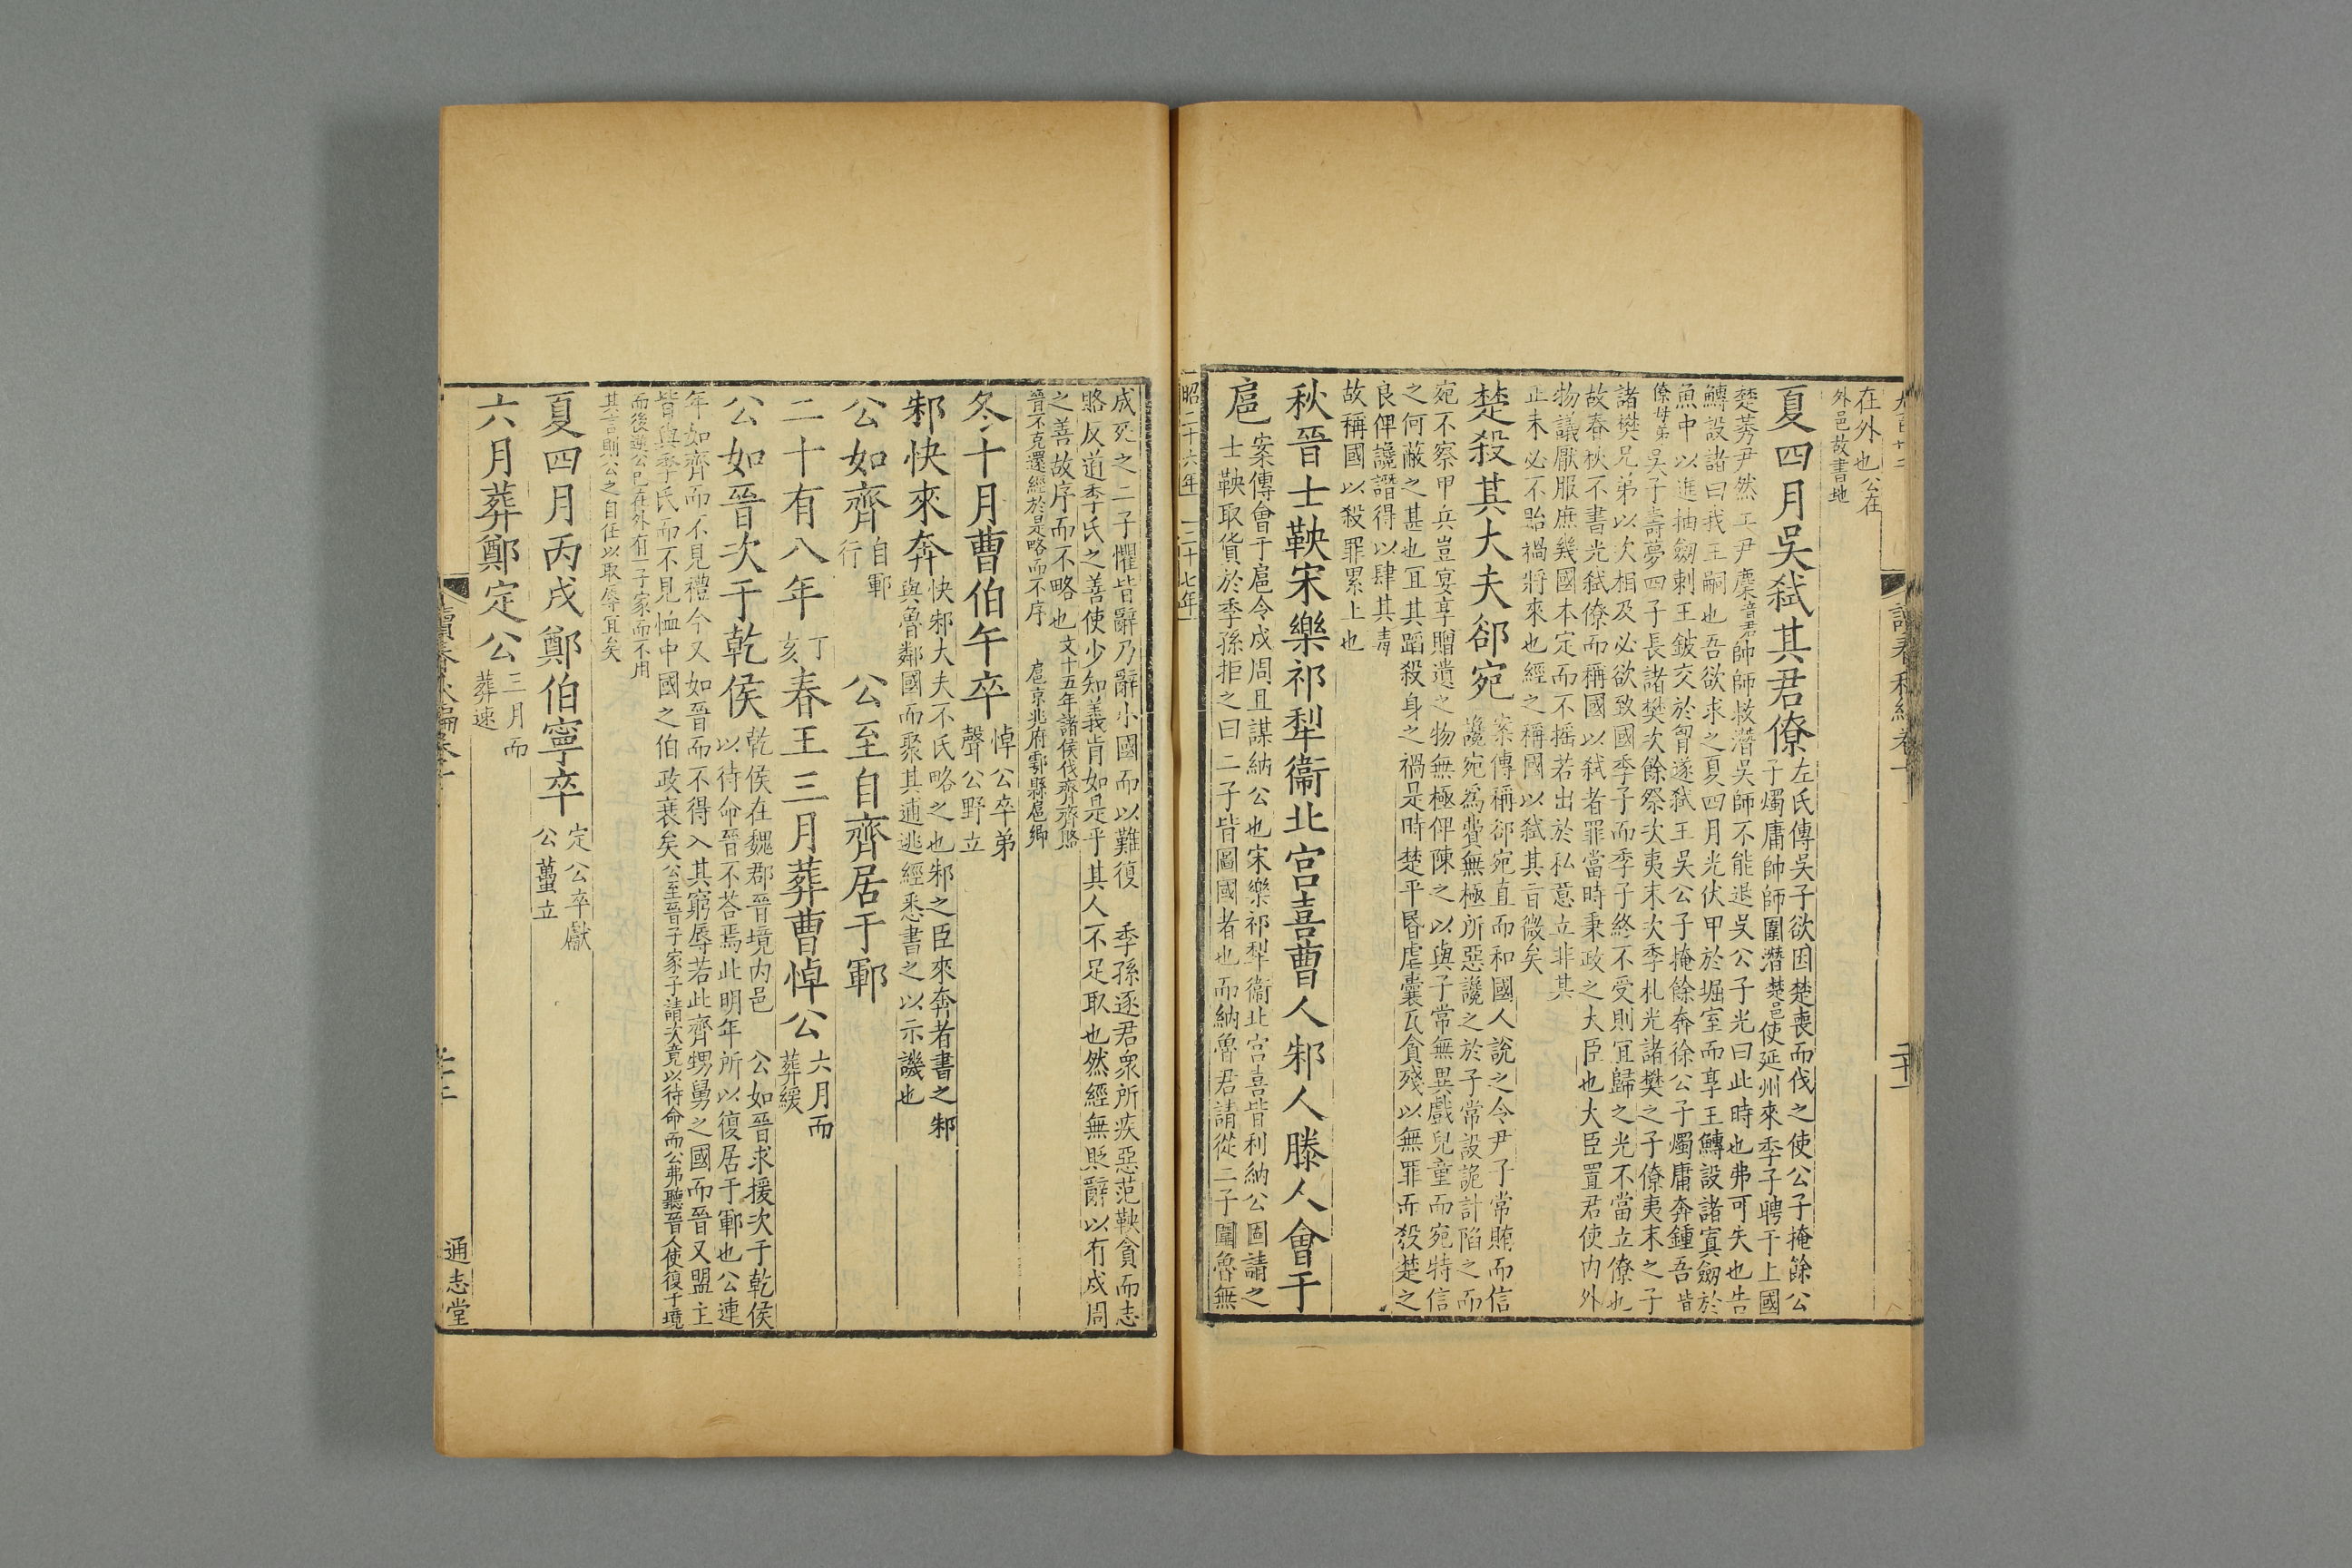 在外也公在
外邑故書地
夏四月吳弒其君僚
左氏傳吳子欲因楚喪而伐之使公子掩餘公
子燭庸帥師圍潛楚邑使延州來季子聘于上國
楚莠尹然工尹麇音君帥師救潛吳師不能退吳公子光曰此時也弗可失也告
鱄設諸曰我王嗣也吾欲求之夏四月光伏甲於堀室而享王鱄設諸寘劒於
魚中以進抽劒刺王鈹交於胷遂弒王吳公子掩餘奔徐公子燭庸奔鍾吾皆
僚母弟吳子壽夢四子長諸樊次餘祭次夷末次季札光諸樊之子僚夷末之子
諸樊兄弟以次相及必欲致國季子而季子終不受則冝歸之光不當立僚也
故春秋不書光弒僚而稱國以弒者罪當時秉政之大臣也大臣置君使內外
物議厭服庶幾國本定而不揺若出於私意立非其
正未必不貽禍將來也經之稱國以弒其旨微矣
楚殺其大夫郤宛
案傳稱郤宛直而和國人說之令尹子常賄而信
讒宛爲費無極所惡讒之於子常設詭計陷之而
宛不察甲兵豈宴享贈遺之物無極俾陳之以與子常無異戲兒童而宛特信
之何蔽之甚也冝其蹈殺身之禍是時楚平昬虐囊瓦貪殘以無罪而殺楚之
良俾讒譖得以肆其毒
故稱國以殺罪累上也
秋晉士鞅宋樂祁犂衞北宮喜曹人邾人滕人會于
扈
案傳會于扈令戍周且謀納公也宋樂祁犂衞北宮喜皆利納公固請之
士鞅取貨於季孫拒之曰二子皆圖國者也而納魯君請從二子圍魯無
昭二十六年 二十七年
成死之二子懼皆辭乃辭小國而以難復 季孫逐君衆所疾惡范鞅貪而志
賂反道季氏之善使少知義肯如是乎其人不足取也然經無貶辭以有戍周
之善故序而不略也文十五年諸侯伐齊齊賂
晉不克還經於是略而不序 扈京兆府鄠縣扈鄉
冬十月曹伯午卒
悼公卒弟
聲公野立
邾快來奔
快邾大夫不氏略之也邾之臣來奔者書之邾
與魯鄰國而聚其逋逃經悉書之以示譏也
公如齊
自鄆
行
公至自齊居于鄆
二十有八年
丁
亥
春王三月葬曹悼公
六月而
葬緩
公如晉次于乾侯
乾侯在魏郡晉境內邑 公如晉求援次于乾侯
以待命晉不荅焉此明年所以復居于鄆也公連
年如齊而不見禮今又如晉而不得入其窮辱若此齊甥舅之國而晉又盟主
皆與季氏而不見恤中國之伯政衰矣公至晉子家子請次竟以待命而公弗聽晉人使復于境
而後逆公已在外有一子家而不用
其言則公之自任以取辱宜矣
夏四月丙戌鄭伯寧卒
定公卒獻
公蠆立
六月葬鄭定公
三月而
葬速
通志堂